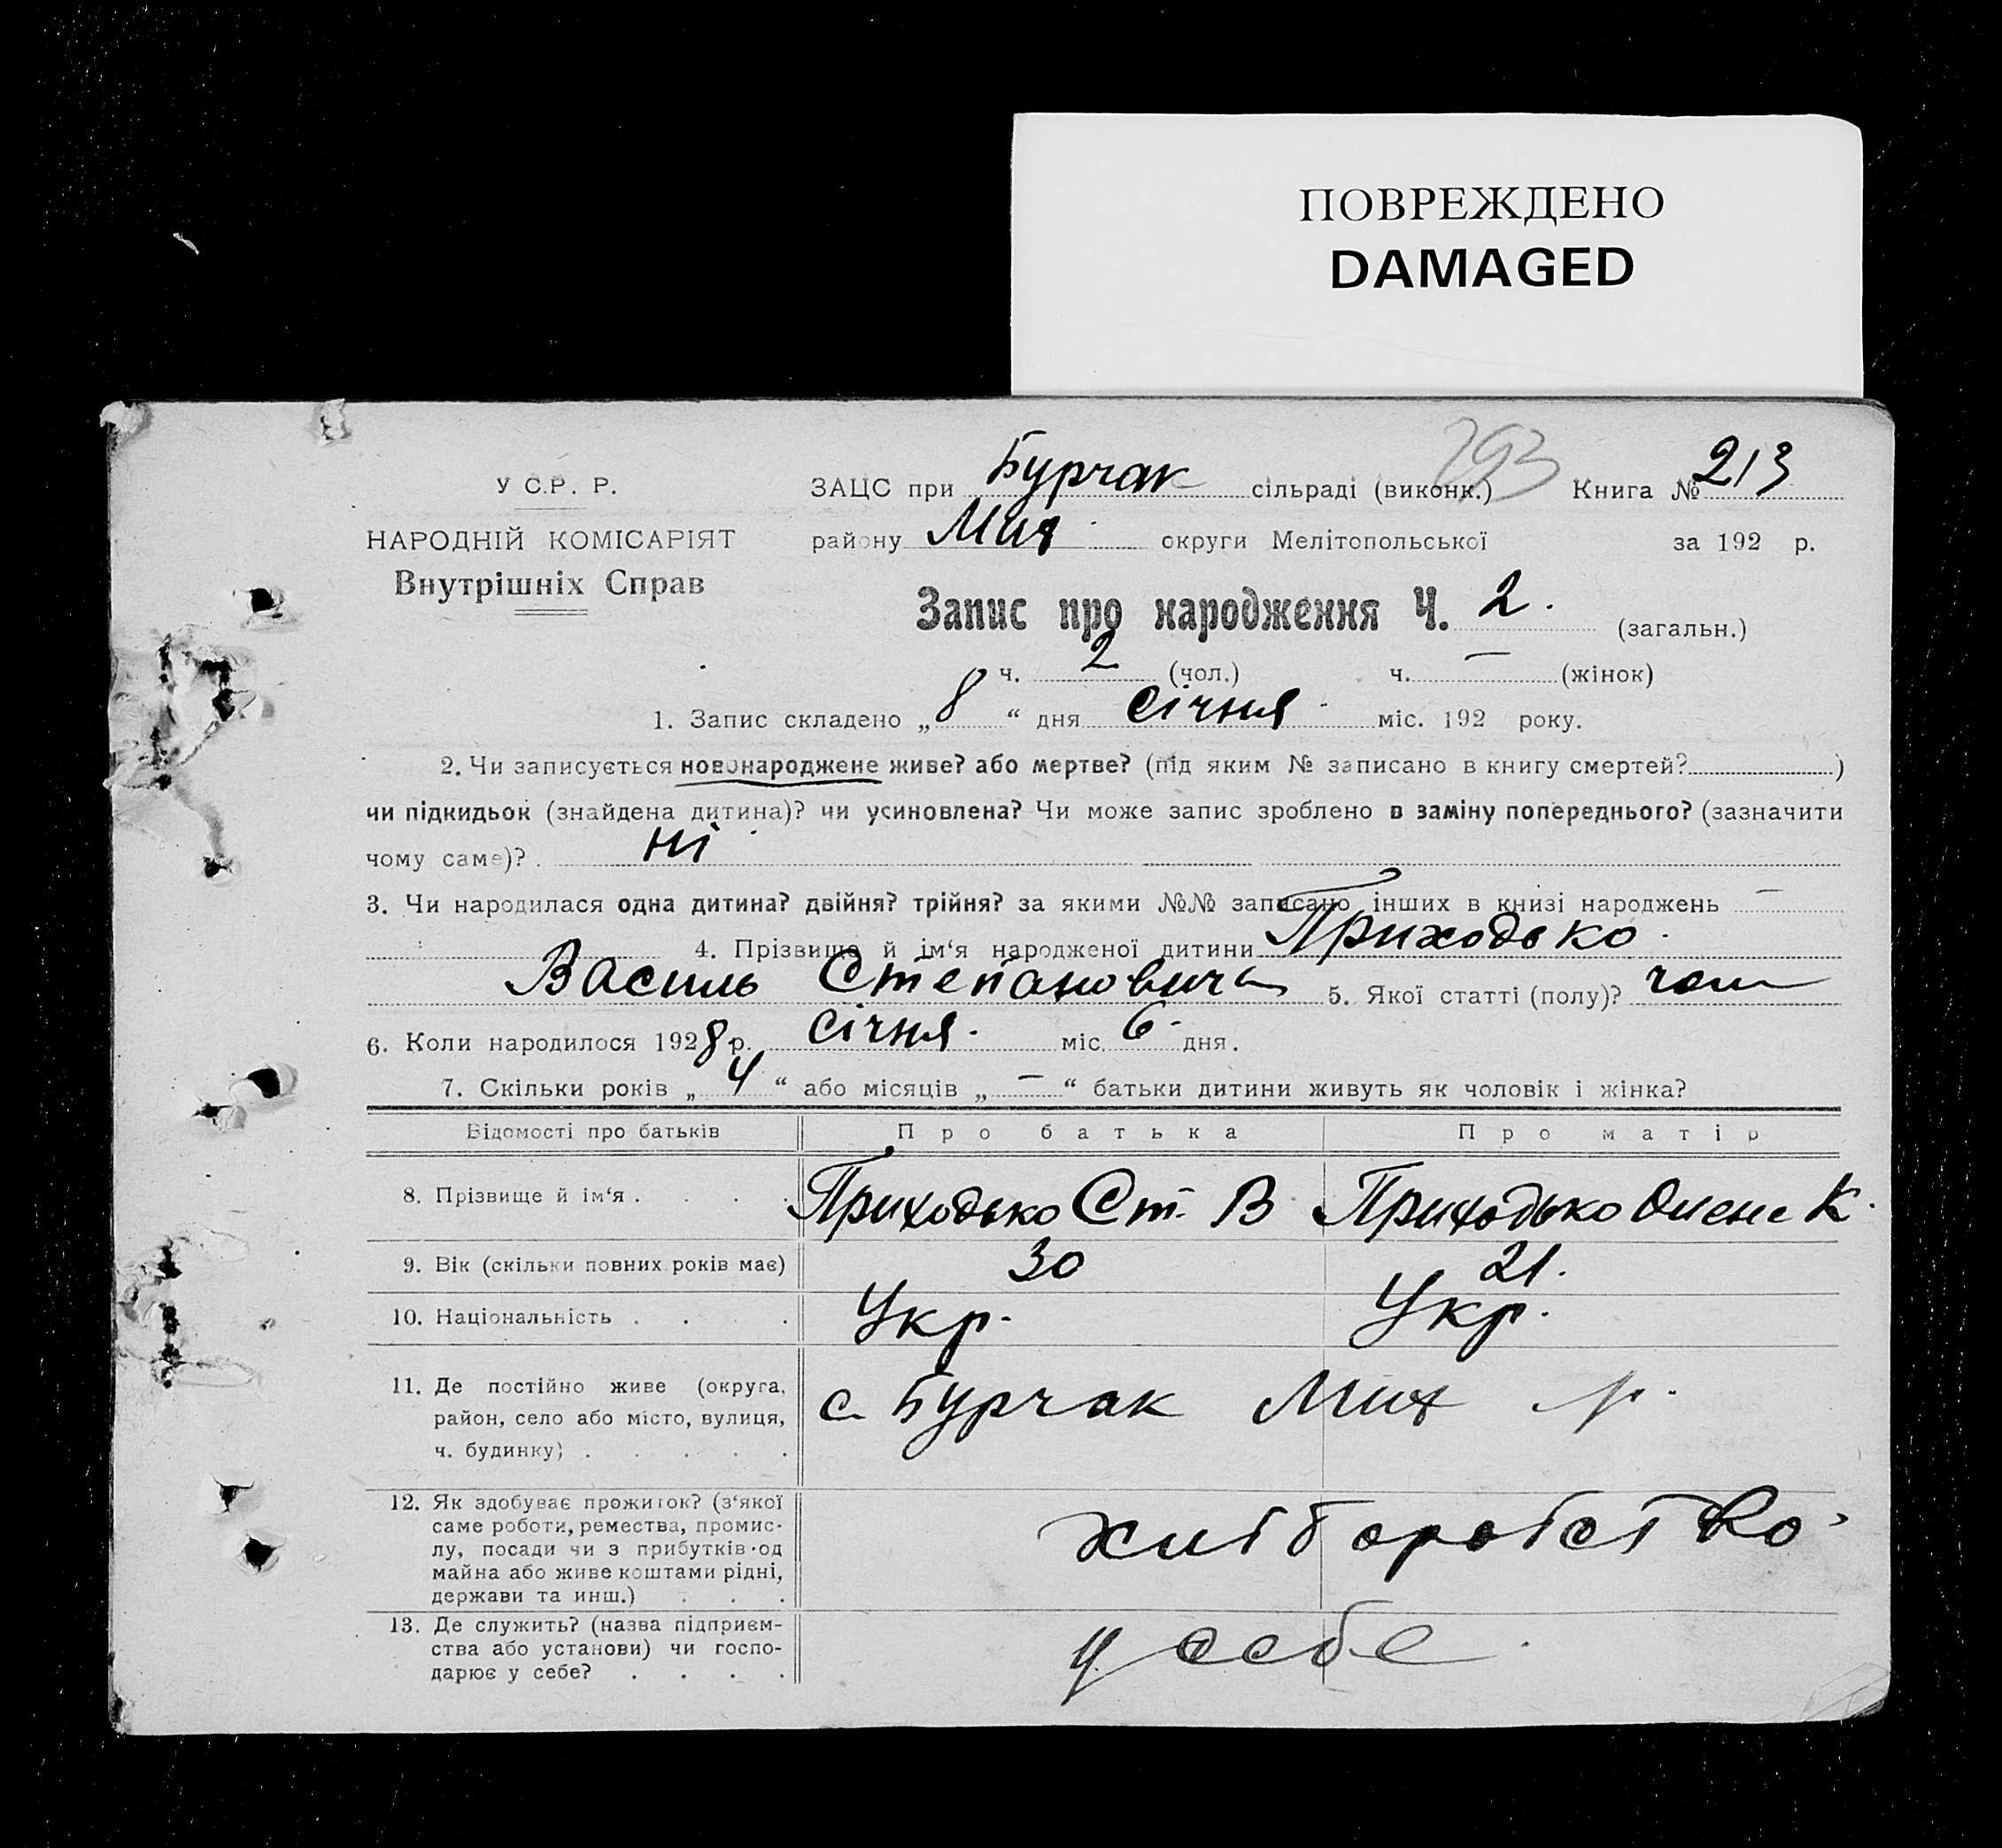 ПОВРЕЖДЕНО
DAMAGED
293
У С.Р. Р.
НАРОДНІЙ КОМІСАРІЯТ
Внутрішніх Справ
ЗАЦС при Бурчак сільраді (виконк.) Книга № 213
району Мих округи Мелітопольської за 192 р.
Запис про народження Ч. 2. (загальн.)
ч. 2 (чол.) ч. — (жінок)
1. Запис складено „8“ дня січня міс. 192 року.
2. Чи записується новонароджене живе? або мертве? (під яким № записано в книгу смертей? )
чи підкидьок (знайдена дитина)? чи усиновлена? Чи може запис зроблено в заміну попереднього? (зазначити
чому саме)? ні
3. Чи народилася одна дитина? двійня? трійня? за якими №№ записано інших в книзі народжень —
4. Прізвище й ім‘я народженої дитини Приходько
Василь Степанович 5. Якої статті (полу)? чол
6. Коли народилося 1928 р. січня міс. 6 дня.
7. Скільки років „4“ або місяців „—“ батьки дитини живуть як чоловік і жінка?
Відомості про батьків Про батька Про матір
8. Прізвище й ім‘я . . . . Приходько Ст. В Приходько Олена К.
9. Вік (скільки повних років має) 30 21.
10. Національність . . . . Укр. Укр.
11. Де постійно живе (округа,
район, село або місто, вулиця,
ч. будинку) . . . . .
с. Бурчак Мих р.
12. Як здобуває прожиток? (з‘якої
саме роботи, ремества, промис-
лу, посади чи з прибутків од
майна або живе коштами рідні,
держави та инш.) . . .
хліборобство
13. Де служить? (назва підприєм-
ства або установи) чи госпо-
дарює у себе? . . . .
у себе